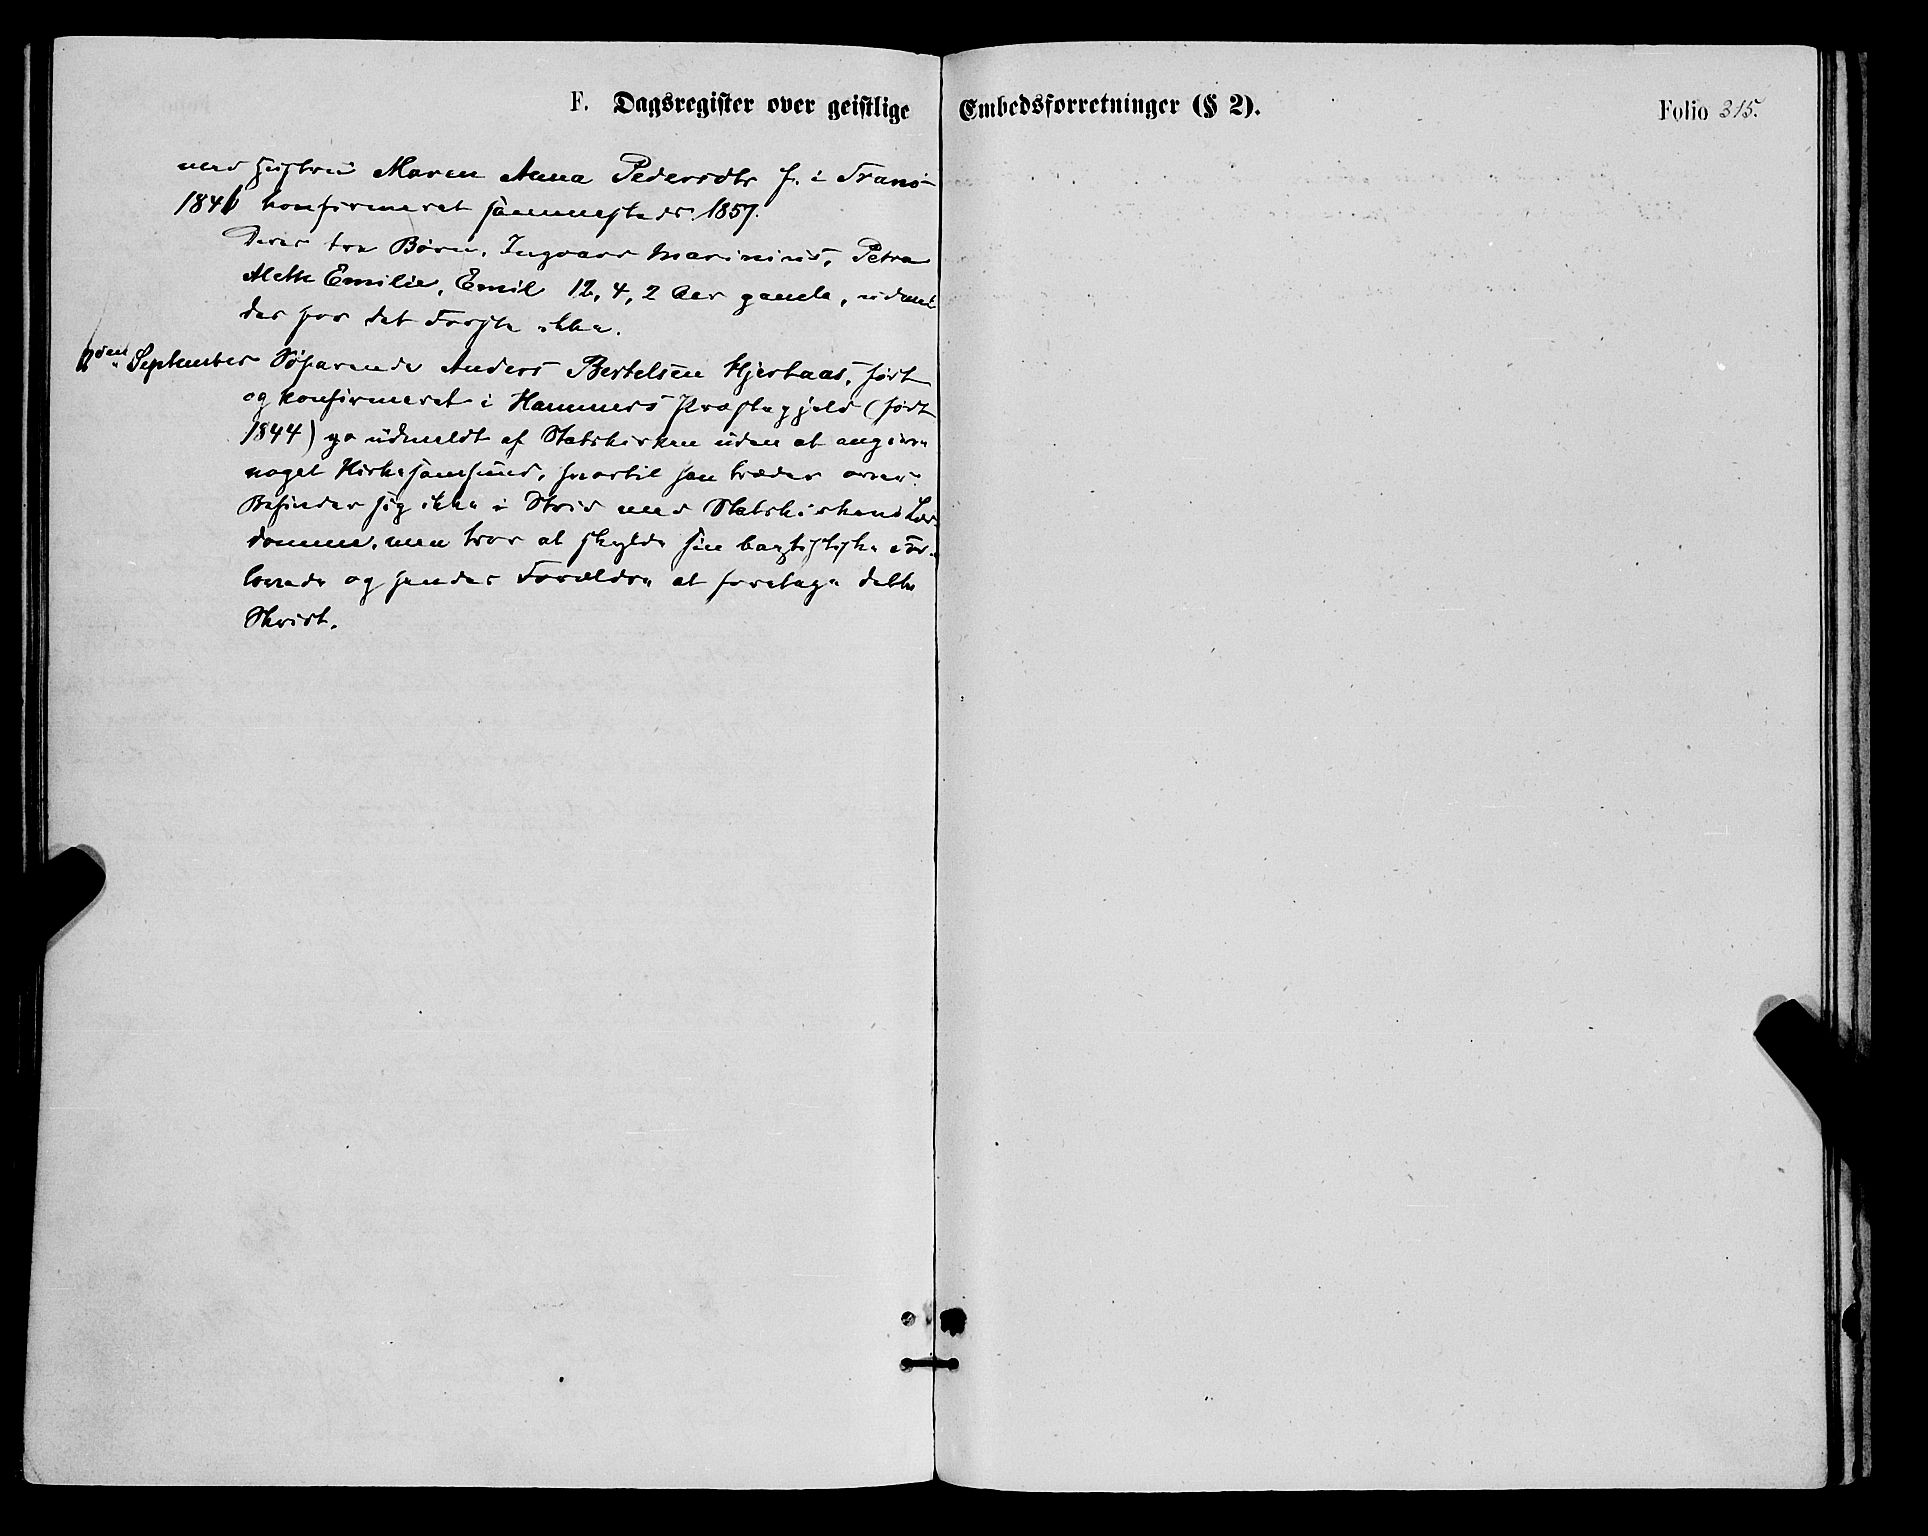 F. Dagsregister over geistlige Embedsforretninger (§ 2). Folio 315.
med Hustru Maren Anna Pedersdtr f. i Tranö
1841 konfirmeret sammesteds 1857.
Deres tre Børn, Ingvard Marinius, Petra
Aleth Emilie, Emil 12, 4, 2 Aar gamle, udmel
des for det Første ikke.
2den September Søfarende Anders Bertelsen Hjertaas, født
og konfirmeret i Hammers Præstegjeld (født
1844) udmeldt af Statskirken uden at angive
noget Kirkesamfund, hvortil han træder over.
Befinder sig ikke i Strid med Statskirkens Lær-
domme, men tror at skylde sin baptistiske For-
lovede og hendes Forældre at foretage dette
Skridt.